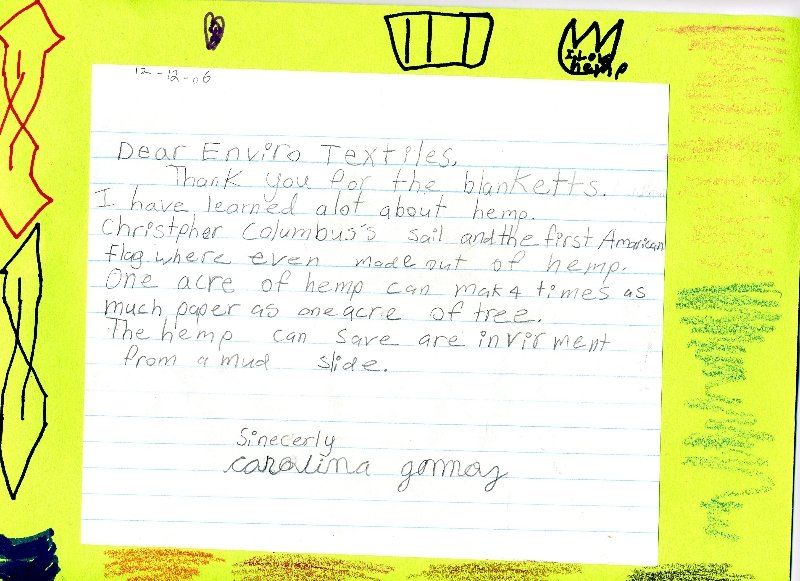 I Love
hemp
12-12-06
Dear Enviro Textiles,
Thank you for the blanketts.
I have learned alot about hemp.
Christpher Columbus's sail and the first American
flag where even made out of hemp.
One acre of hemp can mak 4 times as
much paper as one acre of tree.
The hemp can save are invirment
from a mud slide.
Sinecerly
carolina